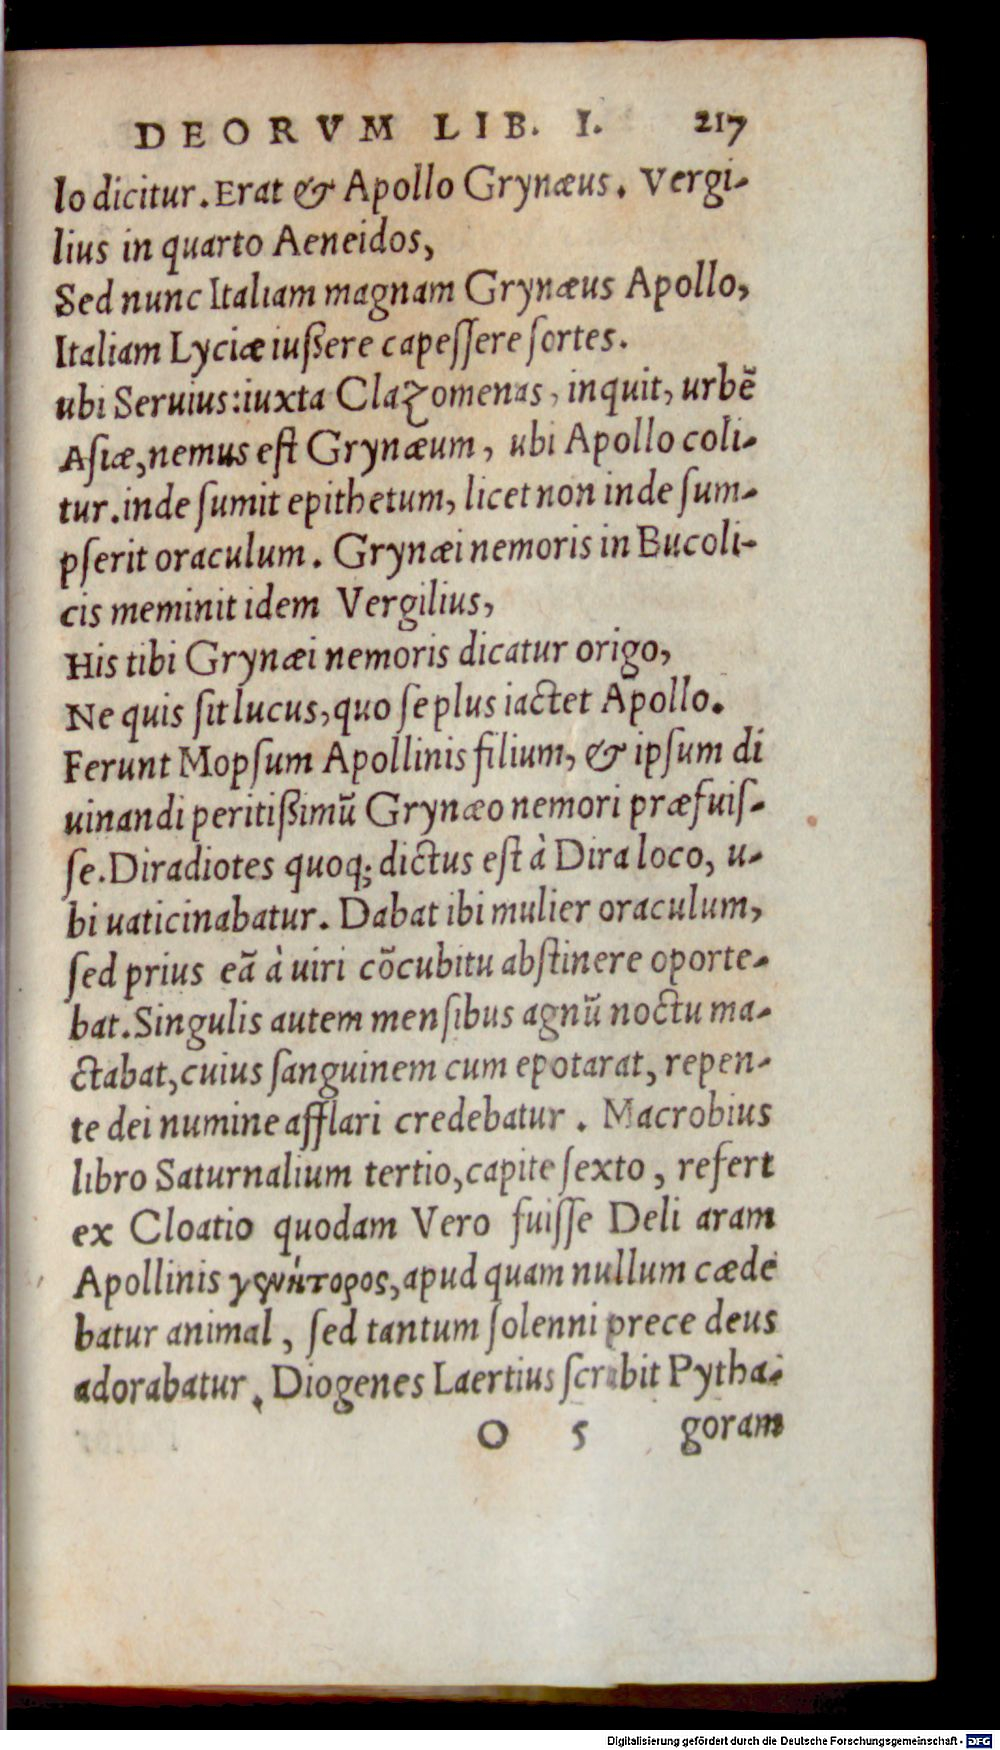 DEORVM LIB. I. 217
lo dicitur. Erat & Apollo Grynæus. Vergi-
lius in quarto Aeneidos,
Sed nunc Italiam magnam Grynæus Apollo,
Italiam Lyciæ iußere capeſſere ſortes.
ubi Seruius: iuxta Clazomenas, inquit, urbē
Aſiæ, nemus eſt Grynæum, ubi Apollo coli-
tur. inde ſumit epithetum, licet non inde ſum-
pſerit oraculum. Grynæi nemoris in Bucoli-
cis meminit idem Vergilius,
His tibi Grynæi nemoris dicatur origo,
Ne quis ſit lucus, quo ſe plus iactet Apollo.
Ferunt Mopſum Apollinis filium, & ipſum di
uinandi peritißimū Grynæo nemori præfuiſ-
ſe. Diradiotes quoq; dictus eſt à Dira loco, u-
bi uaticinabatur. Dabat ibi mulier oraculum,
ſed prius eā à uiri cōcubitu abſtinere oporte-
bat. Singulis autem menſibus agnū noctu ma-
ctabat, cuius ſanguinem cum epotarat, repen-
te dei numine afflari credebatur. Macrobius
libro Saturnalium tertio, capite ſexto, refert
ex Cloatio quodam Vero fuiſſe Deli aram
Apollinis γενήτορος, apud quam nullum cæde
batur animal, ſed tantum ſolenni prece deus
adorabatur. Diogenes Laertius ſcribit Pytha-
O 5 goram
Digitalisierung gefördert durch die Deutsche Forschungsgemeinschaft - DFG